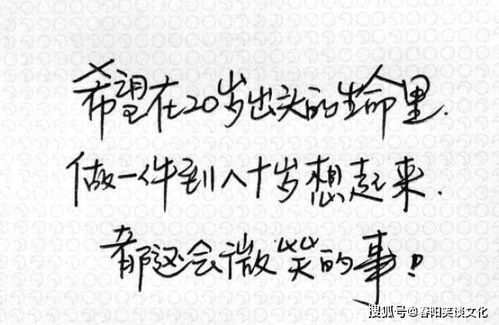 希望在20岁出头的生命里.
做一件到八十岁想起来.
都还会微笑的事!
搜狐号@春阳笑谈文化